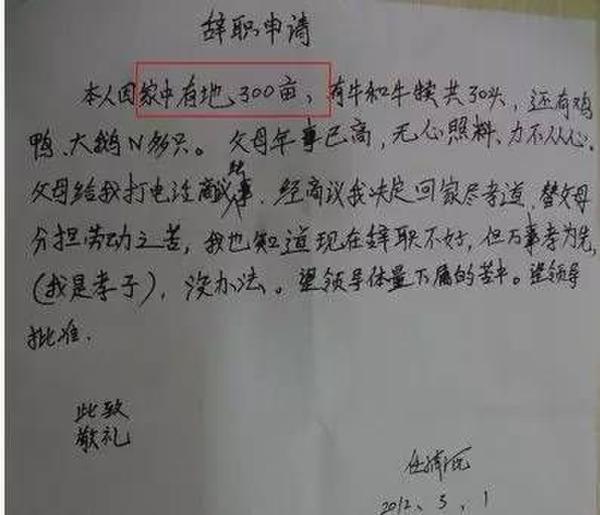 辞职申请
本人因家中有地300亩,有牛和牛犊共30头,还有鸡
鸭、大鹅N多只。父母年事已高,无心照料、力不从心。
父母给我打电话商议此事.经商议我决定回家尽孝道,替父母
分担劳动之苦,我也知道现在辞职不好,但万事孝为先,
(我是孝子),没办法。望领导体量下属的苦中。望领导
批准.
此致
敬礼
2012.5.1